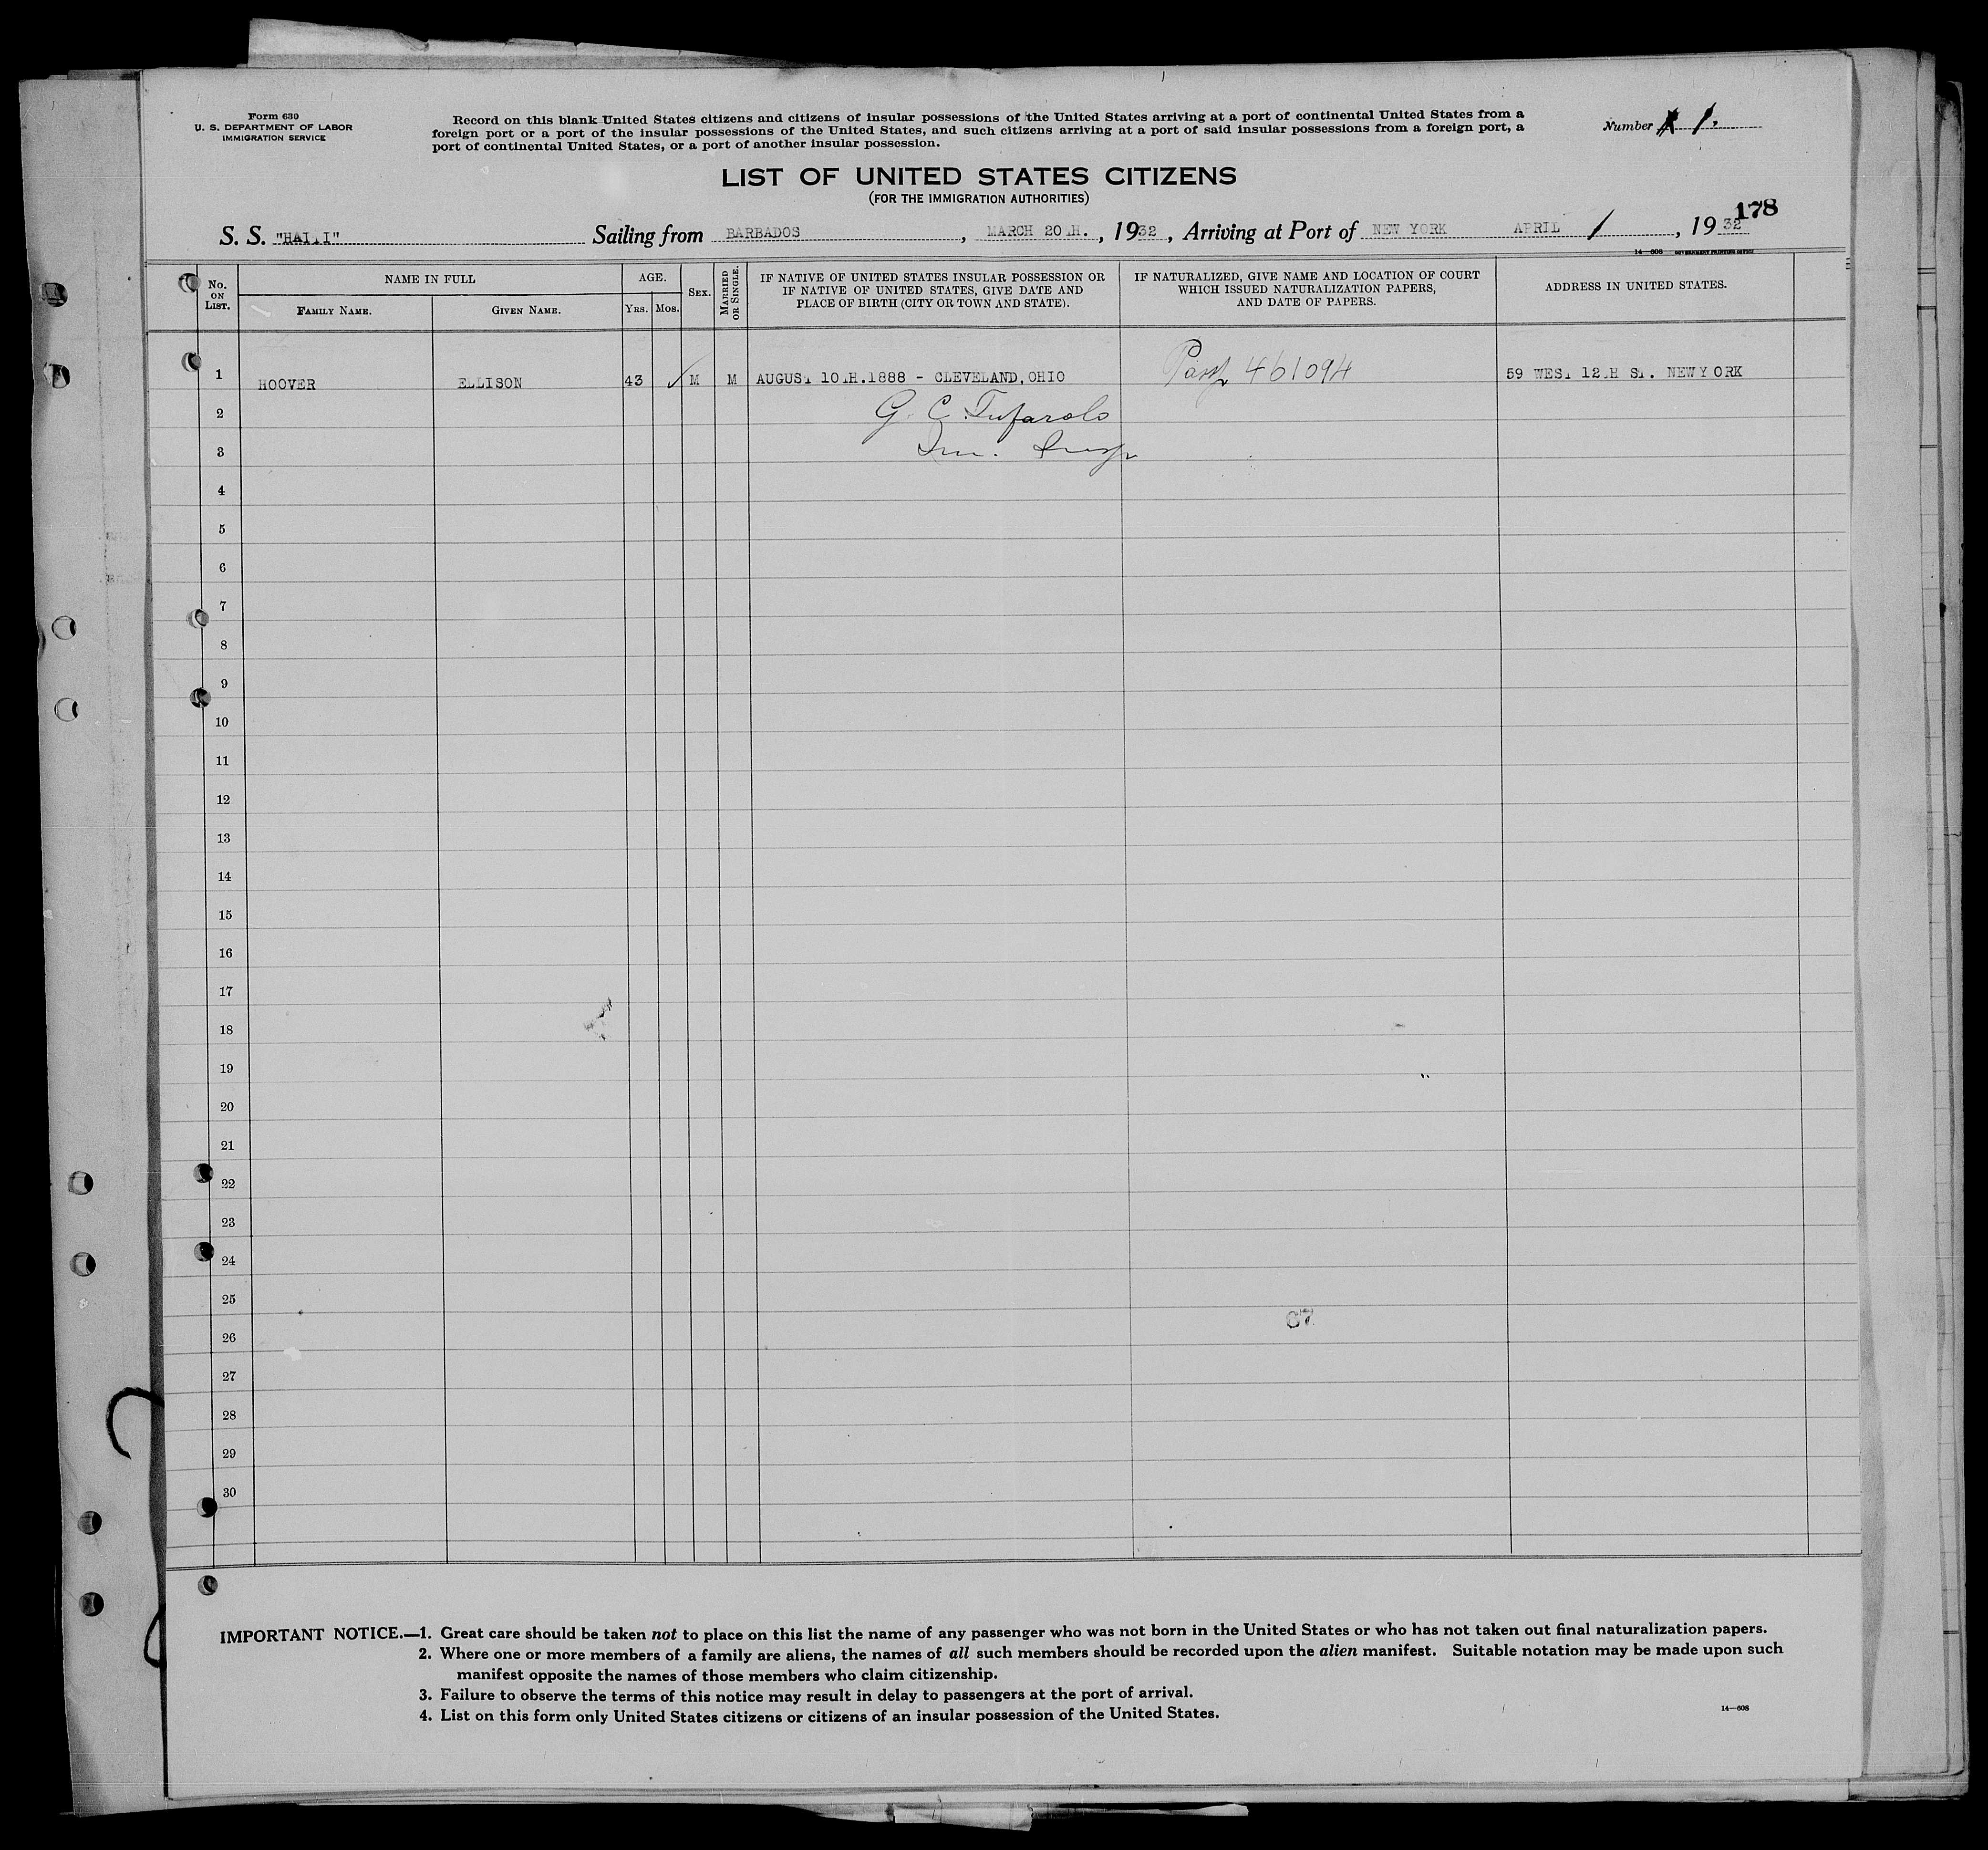 Form 630
U. S. DEPARTMENT OF LABOR
IMMIGRATION SERVICE
Record on this blank United States citizens and citizens of insular possessions of the United States arriving at a port of continental United States from a
foreign port or a port of the insular possessions of the United States, and such citizens arriving at a port of said insular possessions from a foreign port, a
port of continental United States, or a port of another insular possession.
Number 1.
LIST OF UNITED STATES CITIZENS
(FOR THE IMMIGRATION AUTHORITIES)
178
S. S. "HAITI" Sailing from BARBADOS, MARCH 20TH., 1932, Arriving at Port of NEW YORK APRIL 1, 1932
14—608 GOVERNMENT PRINTING OFFICE
No. ON LIST.
NAME IN FULL
FAMILY NAME.
GIVEN NAME.
AGE.
YRS.
MOS.
SEX.
MARRIED OR SINGLE.
IF NATIVE OF UNITED STATES INSULAR POSSESSION OR
IF NATIVE OF UNITED STATES, GIVE DATE AND
PLACE OF BIRTH (CITY OR TOWN AND STATE).
IF NATURALIZED, GIVE NAME AND LOCATION OF COURT
WHICH ISSUED NATURALIZATION PAPERS,
AND DATE OF PAPERS.
ADDRESS IN UNITED STATES.
1 HOOVER ELLISON 43 ✓ M M AUGUST 10TH.1888 - CLEVELAND,OHIO Passp 461094 59 WEST 12TH ST. NEWYORK
2 G. C. Tufarolo
3 Im. Insp
4
5
6
7
8
9
10
11
12
13
14
15
16
17
18
19
20
21
22
23
24
25
67
26
27
28
29
30
IMPORTANT NOTICE.—1. Great care should be taken not to place on this list the name of any passenger who was not born in the United States or who has not taken out final naturalization papers.
2. Where one or more members of a family are aliens, the names of all such members should be recorded upon the alien manifest. Suitable notation may be made upon such
manifest opposite the names of those members who claim citizenship.
3. Failure to observe the terms of this notice may result in delay to passengers at the port of arrival.
4. List on this form only United States citizens or citizens of an insular possession of the United States.
14—608